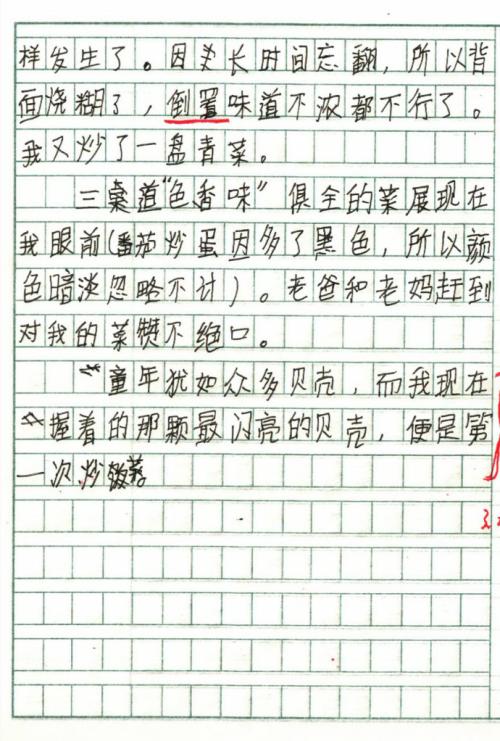 样发生了。因为长时间忘翻，所以背
面烧糊了，倒置味道不浓都不行了。
我又炒了一盘青菜。
三桌道“色香味”俱全的菜展现在
我眼前（番茄炒蛋因多了黑色，所以颜
色暗淡忽略不计）。老爸和老妈赶到
对我的菜赞不绝口。
童年犹如众多贝壳，而我现在
握着的那颗最闪亮的贝壳，便是第
一次炒菜